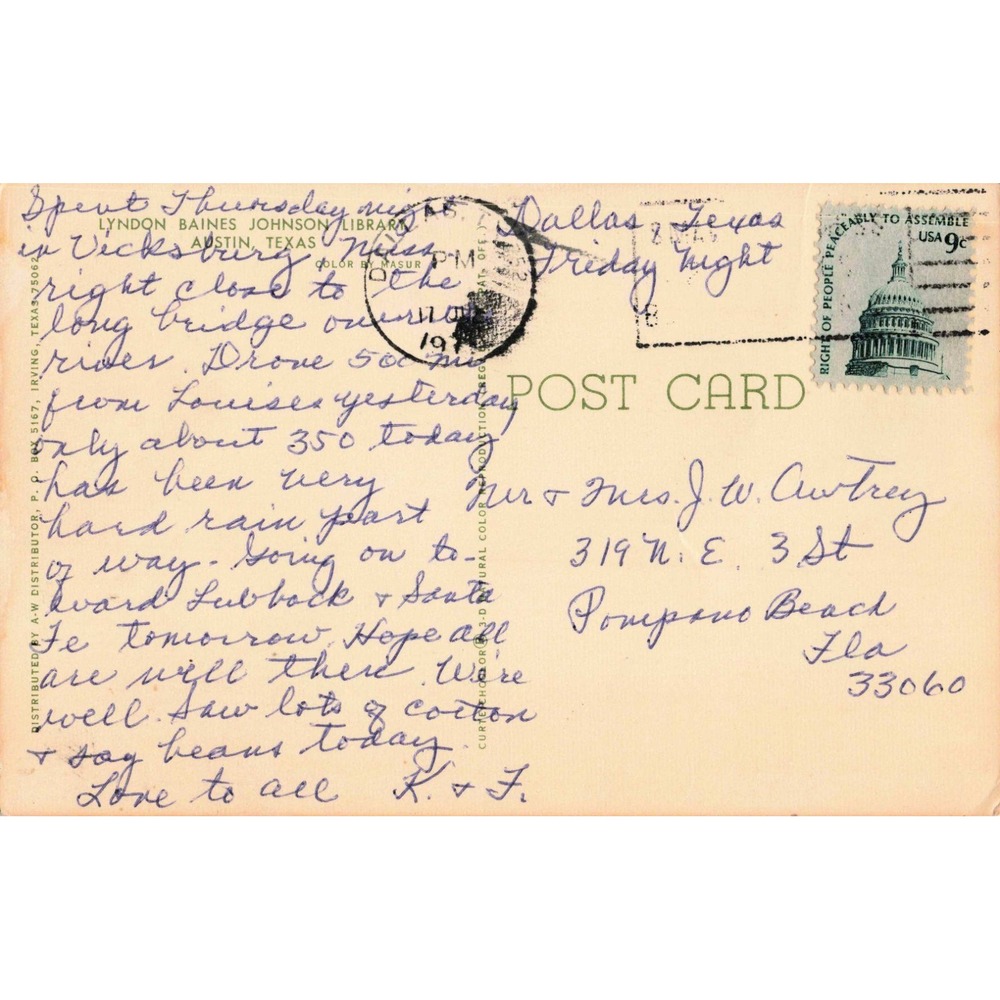 Dallas, Texas
Friday night
Spent Thursday night
in Vicksburg Miss
right close to the
long bridge over
river. Drove 500 mi
from Louises yesterday,
only about 350 today,
has been very
hard rain part
of way - Going on to-
ward Lubbock & Santa
Fe tomorrow. Hope all
are well there. We're
well. Saw lots of cotton
& soy beans today.
Love to all K. & F.
LYNDON BAINES JOHNSON LIBRARY
AUSTIN, TEXAS
COLOR BY MASUR
DISTRIBUTED BY A-W DISTRIBUTOR, P. O. BOX 5167, IRVING, TEXAS 75062
3-D NATURAL COLOR REPRODUCTION (REG.
PAT. OFF.)
POST CARD
PM
17
197
RIGHT OF PEOPLE PEACEABLY TO ASSEMBLE
USA 9c
Mr & Mrs. J. W. Awtrey
319 N. E. 3 St
Pompano Beach
Fla
33060